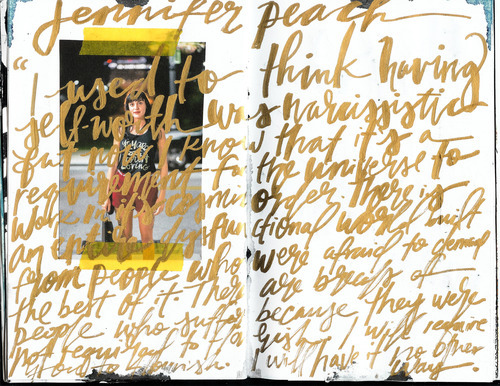 Jennifer peach
"I used to think having
self-worth was narcissistic
but now I know that it's a
requirement for the universe to
work in its cosmic order. There is
an entire dysfunctional world built
from people who were afraid to demand
the best of it. There are breeds of
people who suffer because they were
not required to flourish. I will require
to flourish. I will have it no other way.